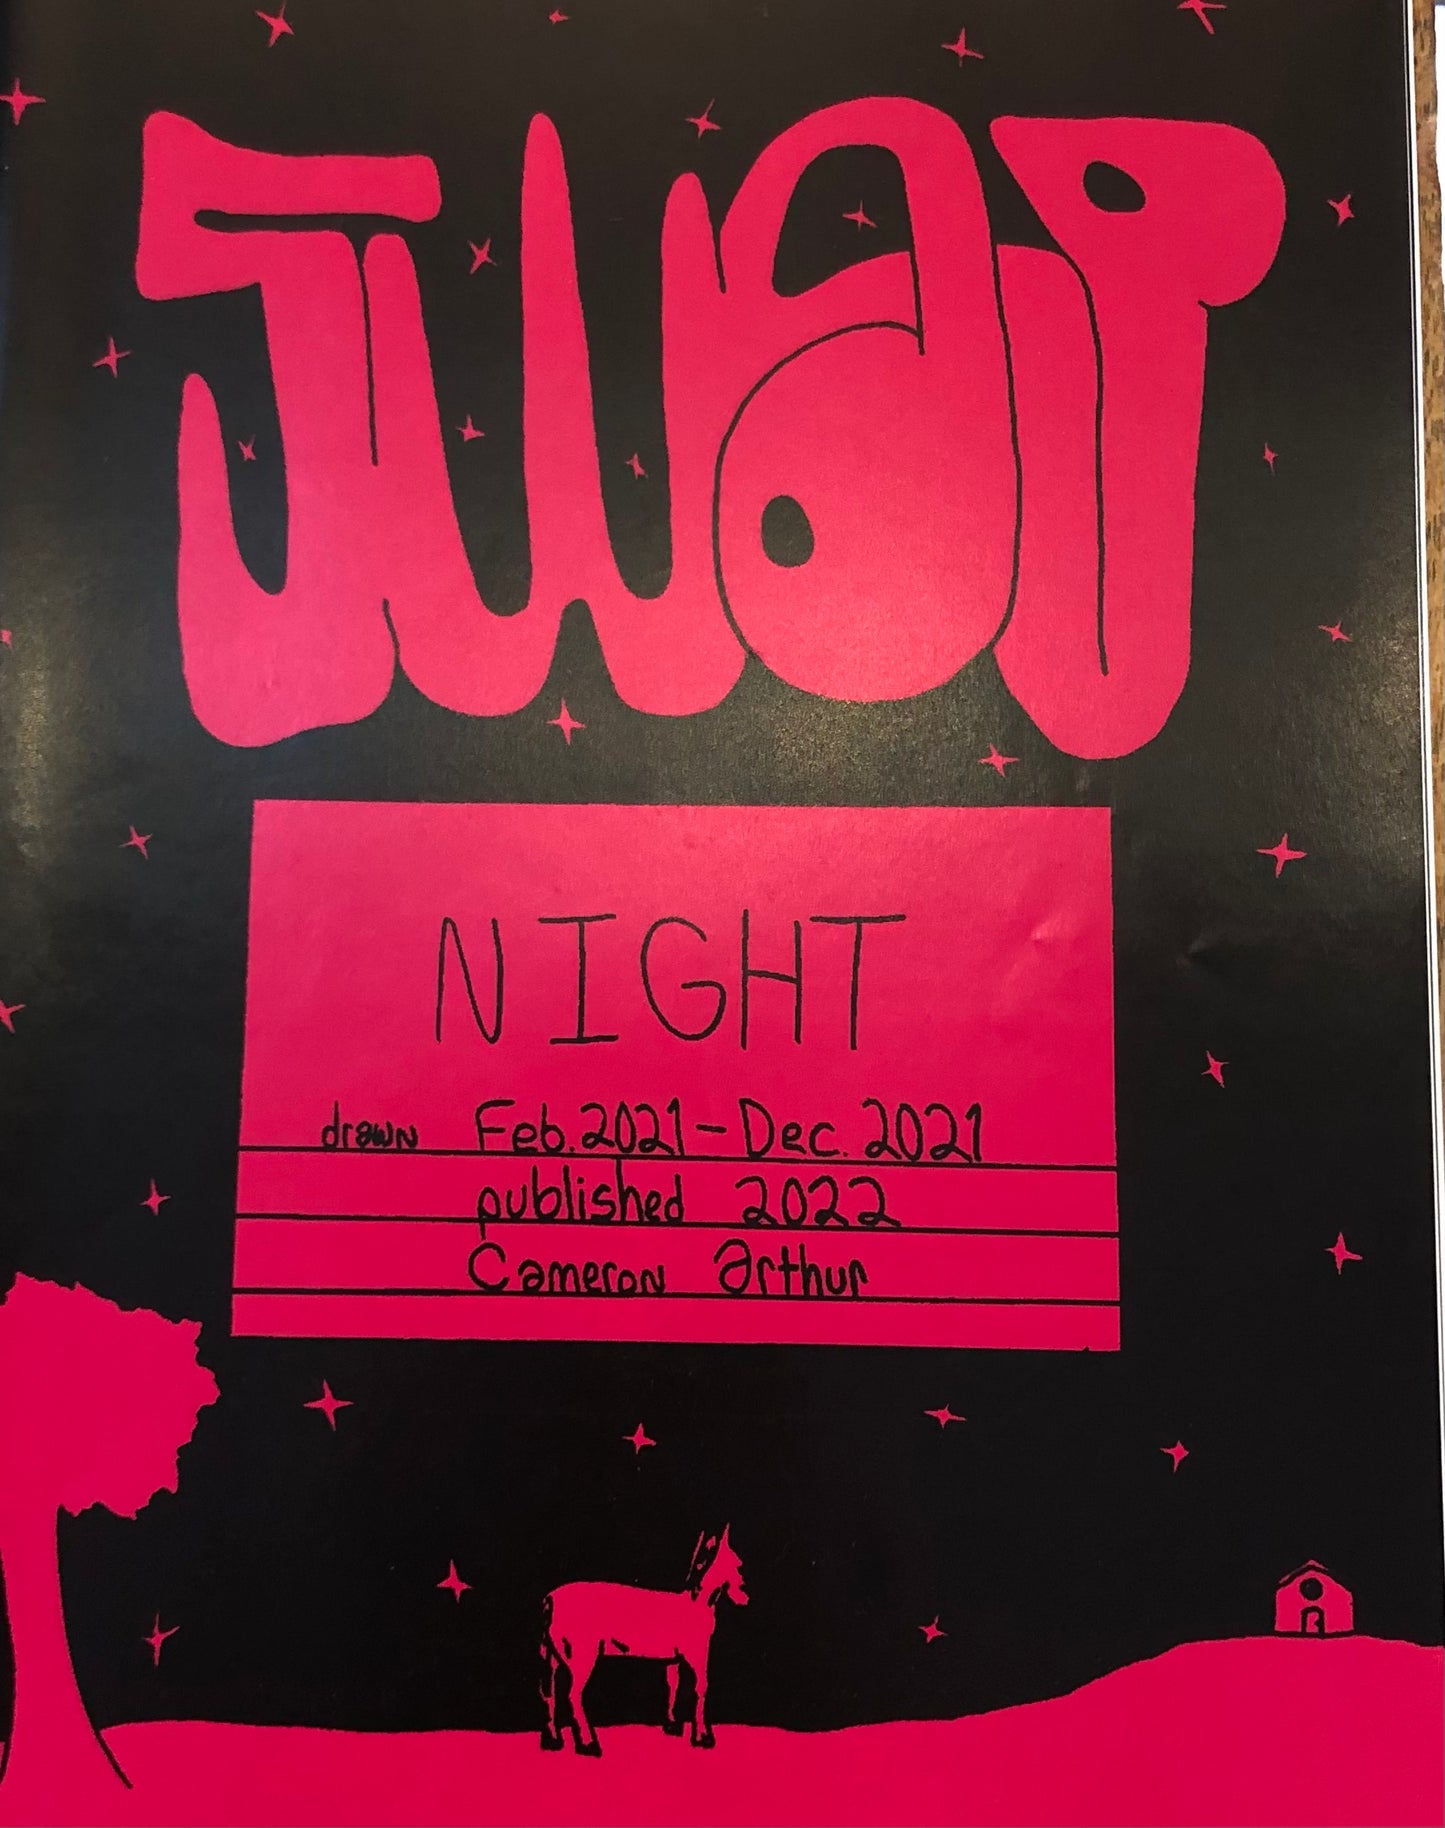 SWAP
NIGHT
drawn Feb. 2021 - Dec. 2021
published 2022
Cameron Arthur